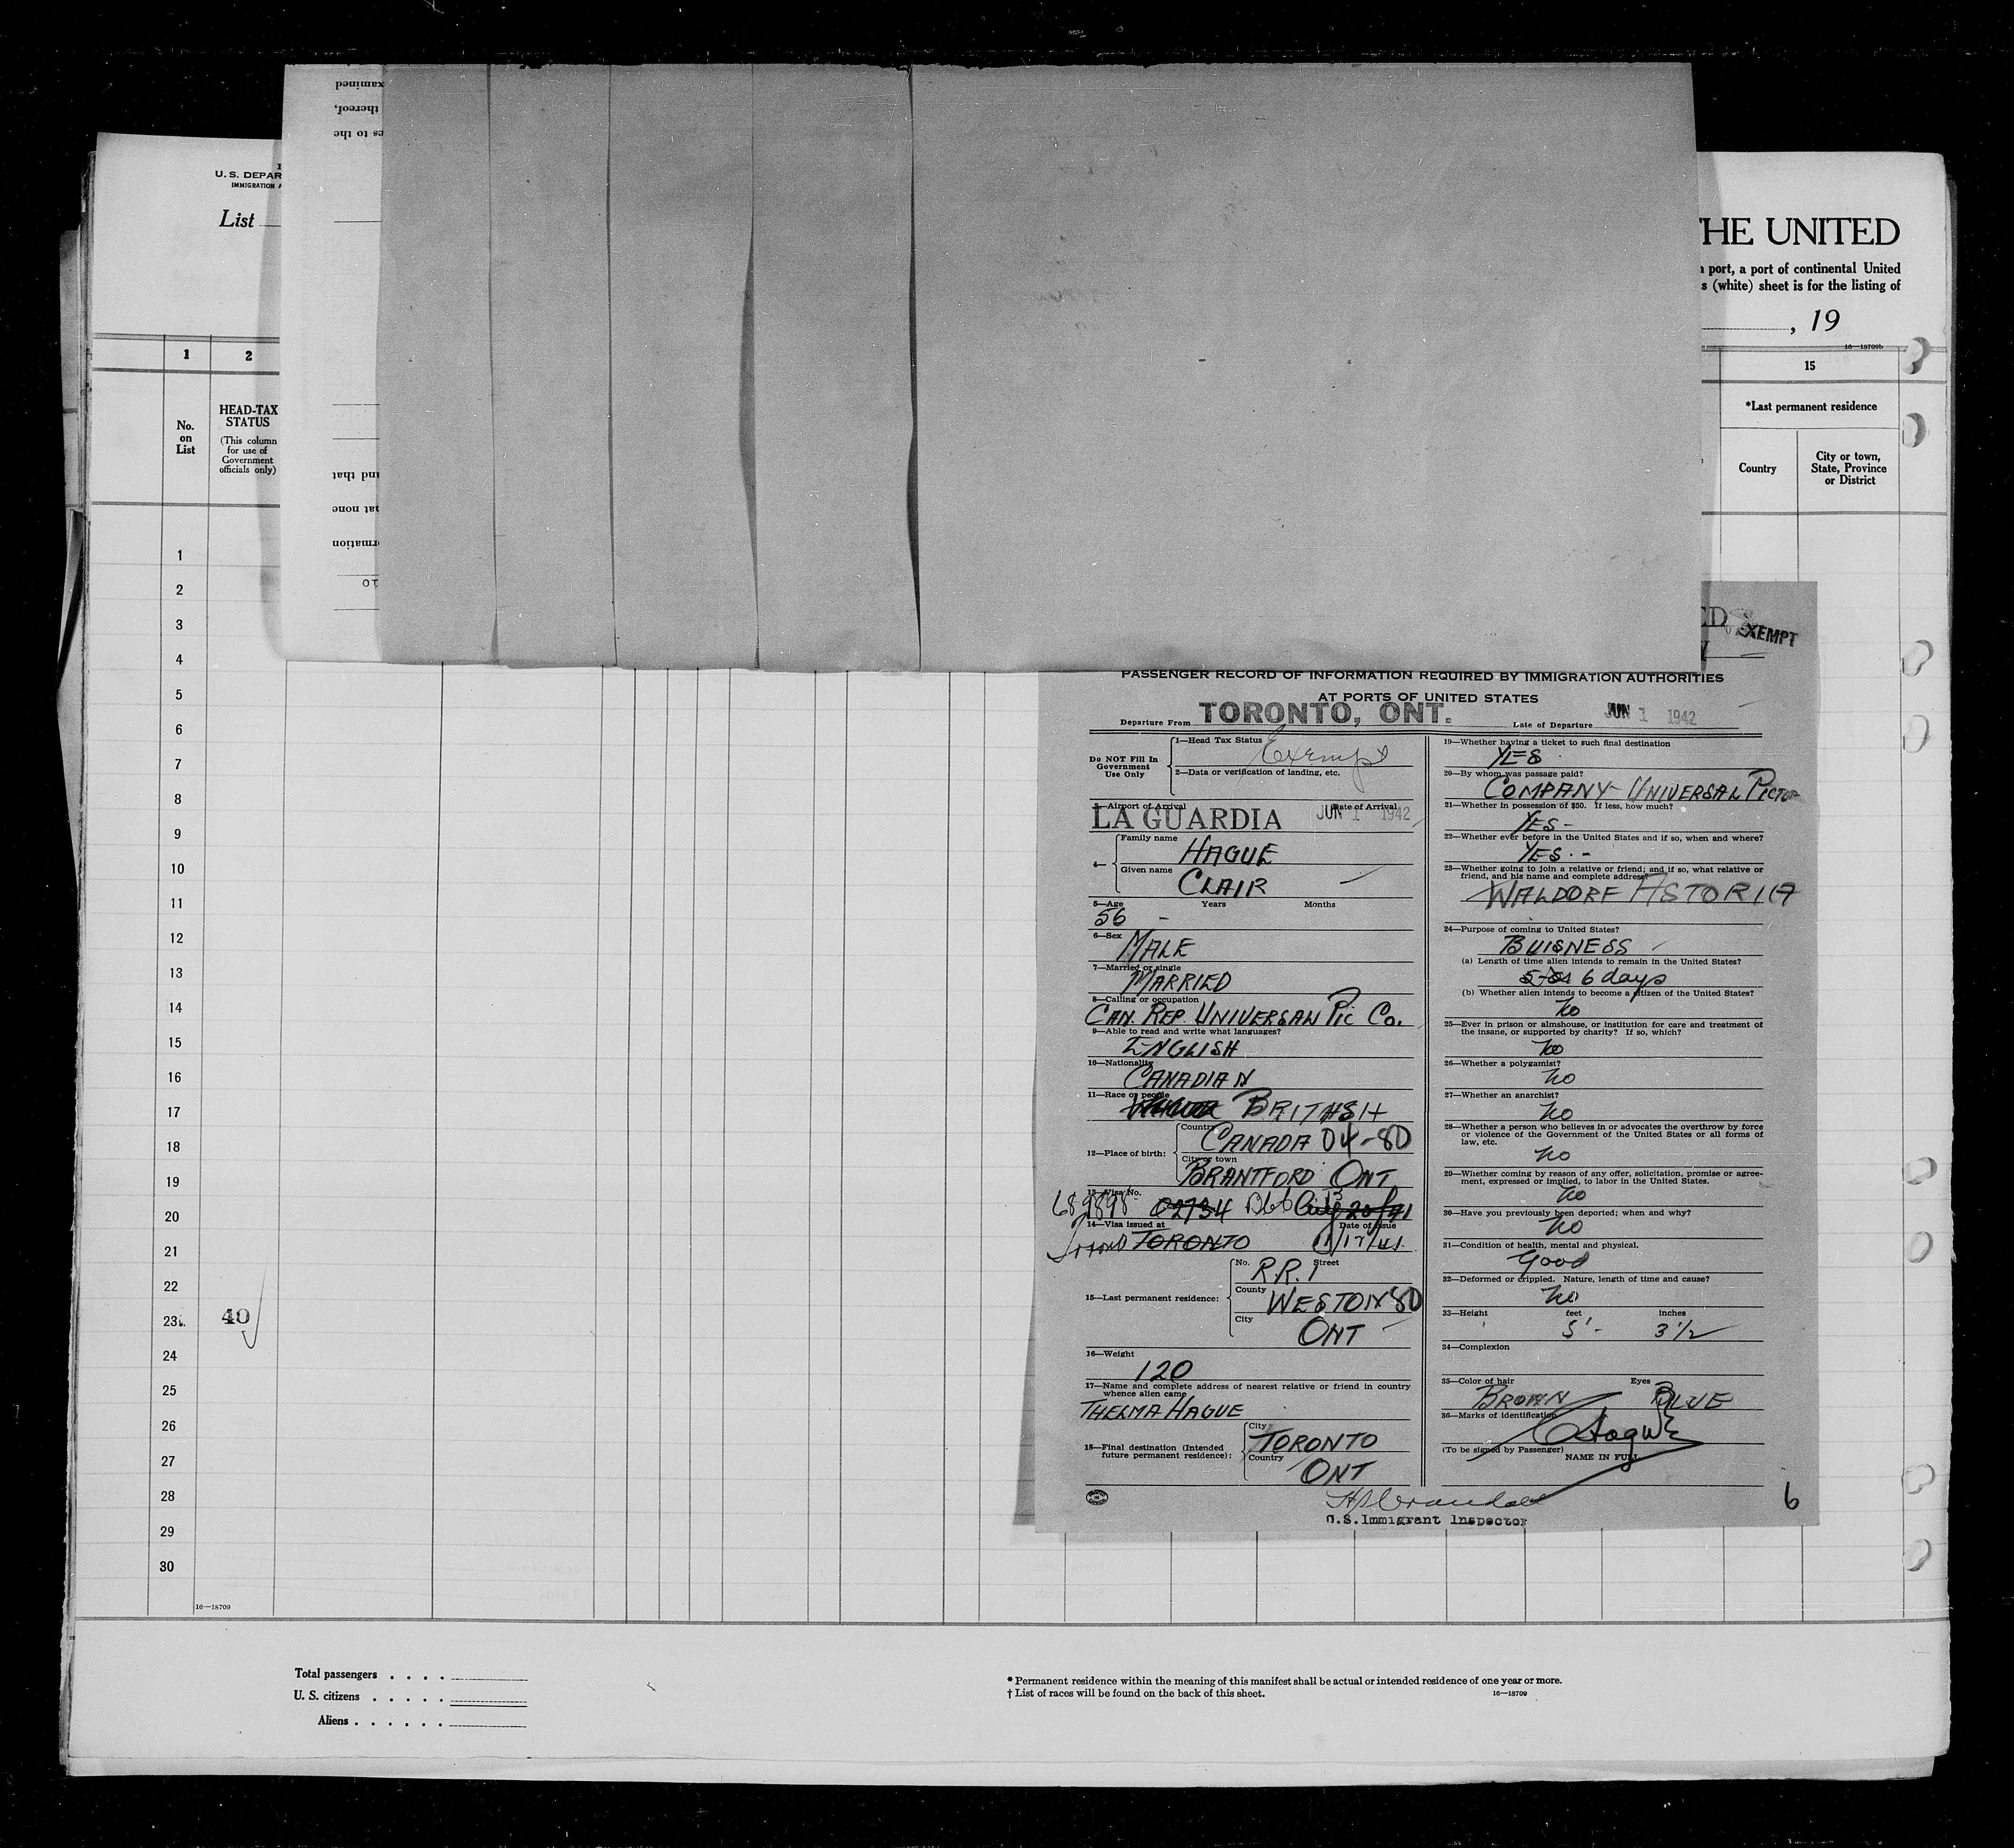 xamined
thereof,
es to the
und that
nat none
ormation
10
U. S. DEPAR
IMMIGRATION A
List
THE UNITED
port, a port of continental United
s (white) sheet is for the listing of
, 19
16—18709b
1
2
15
No.
on
List
HEAD-TAX
STATUS
(This column
for use of
Government
officials only)
*Last permanent residence
Country
City or town,
State, Province
or District
1
2
3
4
5
6
7
8
9
10
11
12
13
14
15
16
17
18
19
20
21
22
23
40
24
25
26
27
28
29
30
16—18709
ED
EXEMPT
PASSENGER RECORD OF INFORMATION REQUIRED BY IMMIGRATION AUTHORITIES
AT PORTS OF UNITED STATES
Departure From TORONTO, ONT. Date of Departure JUN 1 1942
Do NOT Fill In
Government
Use Only
1—Head Tax Status Exempt
2—Data or verification of landing, etc.
3—Airport of Arrival Date of Arrival
LA GUARDIA JUN 1 1942
4—
Family name
HAGUE
Given name
CLAIR
5—Age Years Months
56 -
6—Sex
MALE
7—Married or single
MARRIED
8—Calling or occupation
CAN. REP. UNIVERSAL PIC CO.
9—Able to read and write what languages?
ENGLISH
10—Nationality
CANADIAN
11—Race or people
BRITHSH
12—Place of birth:
Country
CANADA 04-80
City or town
BRANTFORD ONT
13—Visa No.
689898 02734
14—Visa issued at Date of issue
TORONTO
15—Last permanent residence:
No. Street
R.R. 1
County
WESTON 80
City
ONT
16—Weight
120
17—Name and complete address of nearest relative or friend in country
whence alien came
THELMA HAGUE
18—Final destination (Intended
future permanent residence):
City
TORONTO
Country
ONT
19—Whether having a ticket to such final destination
YES
20—By whom was passage paid?
COMPANY - UNIVERSAL PICTOR
21—Whether in possession of $50. If less, how much?
YES -
22—Whether ever before in the United States and if so, when and where?
YES. -
23—Whether going to join a relative or friend; and if so, what relative or
friend, and his name and complete address?
WALDORF ASTORIA
24—Purpose of coming to United States?
BUISNESS
(a) Length of time alien intends to remain in the United States?
5 or 6 days
(b) Whether alien intends to become a citizen of the United States?
No
25—Ever in prison or almshouse, or institution for care and treatment of
the insane, or supported by charity? If so, which?
No
26—Whether a polygamist?
No
27—Whether an anarchist?
No
28—Whether a person who believes in or advocates the overthrow by force
or violence of the Government of the United States or all forms of
law, etc.
No
29—Whether coming by reason of any offer, solicitation, promise or agree-
ment, expressed or implied, to labor in the United States.
No
30—Have you previously been deported; when and why?
No
31—Condition of health, mental and physical.
Good
32—Deformed or crippled. Nature, length of time and cause?
No
33—Height feet inches
5'- 3 1/2
34—Complexion
35—Color of hair Eyes
BROWN BLUE
36—Marks of identification
CHague
(To be signed by Passenger)
NAME IN FULL
U.S. Immigrant Inspector
6
Total passengers . . . .
U. S. citizens . . . . .
Aliens . . . . . .
* Permanent residence within the meaning of this manifest shall be actual or intended residence of one year or more.
† List of races will be found on the back of this sheet.
16—18709